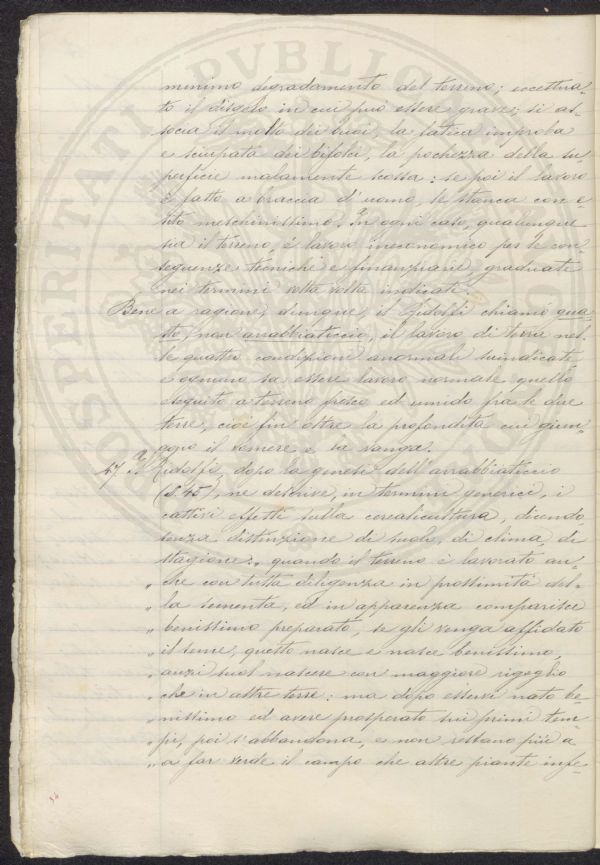 minimo degradamento del terreno; eccettua-
to il disgelo in cui può essere grave; si as-
socia il molto dei buoi, la fatica improba
e sciupata dei bifolci, la pochezza della su-
perficie malamente scossa: se poi il lavoro
è fatto a braccia d'uomo, le stanca con e-
sito meschinissimo. In ogni caso, qualunque
sia il terreno, è lavoro ineconomico per le con-
seguenze tecniche e finanziarie, graduate
nei termini volta volta indicati.
Bene a ragione, dunque, il Ridolfi chiamò gua-
sto, non arrabbiaticcio, il lavoro di terra nel-
le quattro condizioni anormali suindicate,
e ognuno sa essere lavoro normale quello
eseguito a terreno fresco ed umido fra le due
terre, cioè fin oltre la profondità cui giun-
gono il vomere e la vanga.
47. Il Ridolfi, dopo la genesi dell'arrabbiaticcio
(§.45), ne descrive, in termini generici, i
cattivi effetti sulla cerealicultura, dicendo
senza distinzione di suolo, di clima di
stagione: „ quando il terreno è lavorato an-
„ che con tutta diligenza in prossimità del-
„ la sementa, ed in apparenza comparisce
„ benissimo preparato, se gli venga affidato
„ il seme, questo nasce e nasce benissimo,
„ anzi suol nascere con maggiore rigoglio
„ che in altre terre: ma dopo esservi nato be-
„ nissimo ed avere prosperato sui primi tem-
„ pi, poi s'abbandona, e non restano più a
„ a far verde il campo che altre piante infe-